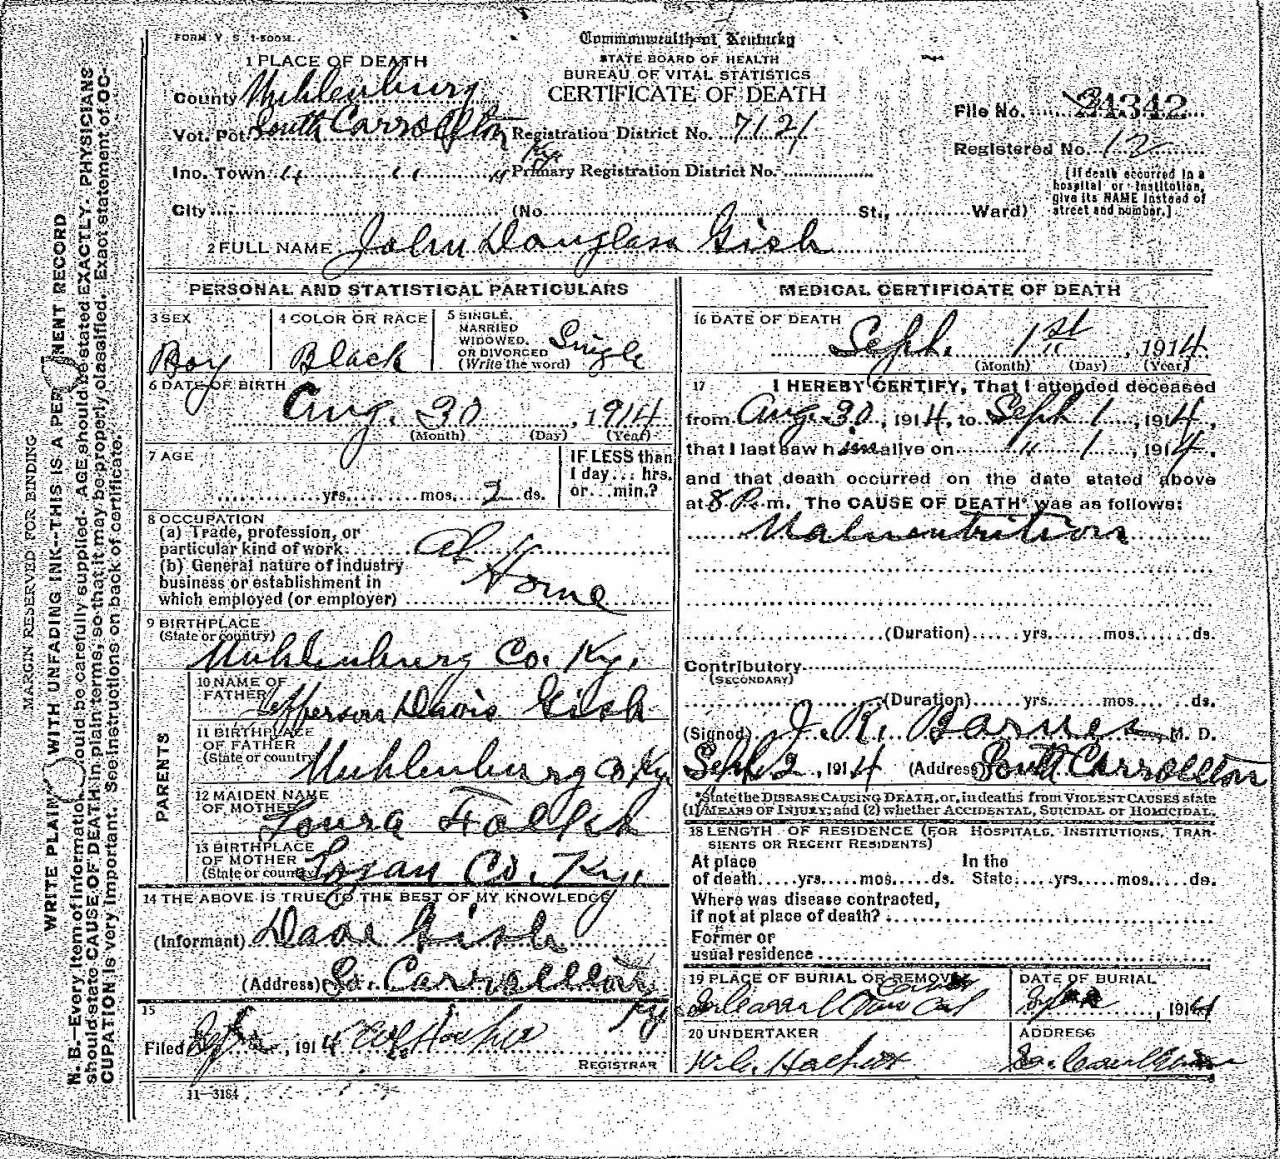 FORM V. S. 1-500M.
Commonwealth of Kentucky
STATE BOARD OF HEALTH
BUREAU OF VITAL STATISTICS
CERTIFICATE OF DEATH
1 PLACE OF DEATH
County Muhlenburg
Vot. Pct South Carrollton Ky Registration District No. 7121
Ino. Town " " " Primary Registration District No.
City (No. St., Ward)
File No. 24342
Registered No. 12
(If death occurred in a hospital or institution, give its NAME instead of street and number.)
2 FULL NAME John Douglass Gish
PERSONAL AND STATISTICAL PARTICULARS
3 SEX Boy
4 COLOR OR RACE Black
5 SINGLE, MARRIED WIDOWED, OR DIVORCED (Write the word) Single
6 DATE OF BIRTH
Aug. 30, 1914
(Month) (Day) (Year)
7 AGE
yrs. mos. 2 ds.
IF LESS than 1 day... hrs. or... min.?
8 OCCUPATION
(a) Trade, profession, or particular kind of work
(b) General nature of industry business or establishment in which employed (or employer)
At Home
9 BIRTHPLACE
(State or country)
Muhlenburg Co. Ky.
PARENTS
10 NAME OF FATHER Jefferson Davis Gish
11 BIRTHPLACE OF FATHER (State or country) Muhlenburg Co Ky.
12 MAIDEN NAME OF MOTHER Loura Folks
13 BIRTHPLACE OF MOTHER (State or country) Logan Co. Ky.
14 THE ABOVE IS TRUE TO THE BEST OF MY KNOWLEDGE
(Informant) Dave Gish
(Address) So. Carrollton Ky
15
Filed 1914
REGISTRAR
11-3184
MEDICAL CERTIFICATE OF DEATH
16 DATE OF DEATH
Sept. 1st, 1914
(Month) (Day) (Year)
17 I HEREBY CERTIFY, That I attended deceased
from Aug. 30, 1914, to Sept 1, 1914,
that I last saw him alive on " 1, 1914.
and that death occurred on the date stated above
at 8 P. m. The CAUSE OF DEATH* was as follows:
Malnutrition
(Duration) yrs. mos. ds.
Contributory
(SECONDARY)
(Duration) yrs. mos. ds.
(Signed) J. R. Barnes, M. D.
Sept 2, 1914 (Address) South Carrollton
*State the DISEASE CAUSING DEATH, or, in deaths from VIOLENT CAUSES state
(1) MEANS OF INJURY; and (2) whether ACCIDENTAL, SUICIDAL or HOMICIDAL.
18 LENGTH OF RESIDENCE (FOR HOSPITALS, INSTITUTIONS, TRANSIENTS OR RECENT RESIDENTS)
At place of death yrs. mos. ds. In the State yrs. mos. ds.
Where was disease contracted, if not at place of death?
Former or usual residence
19 PLACE OF BURIAL OR REMOVAL
DATE OF BURIAL
1914
20 UNDERTAKER
ADDRESS
So. Carrollton
MARGIN RESERVED FOR BINDING
WRITE PLAINLY WITH UNFADING INK--THIS IS A PERMANENT RECORD
N. B.--Every item of information should be carefully supplied. AGE should be stated EXACTLY. PHYSICIANS
should state CAUSE OF DEATH in plain terms, so that it may be properly classified. Exact statement of OC-
CUPATION is very important. See instructions on back of certificate.